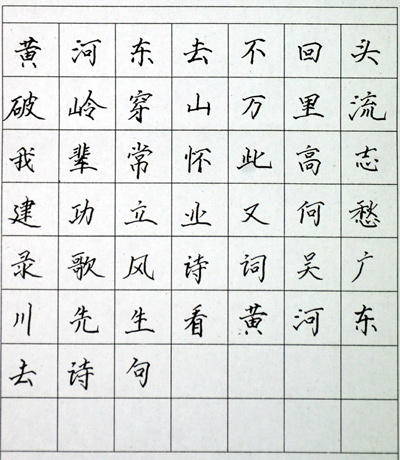 黄河东去不回头
破岭穿山万里流
我辈常怀此高志
建功立业又何愁
录歌风诗词吴广
川先生看黄河东
去诗句